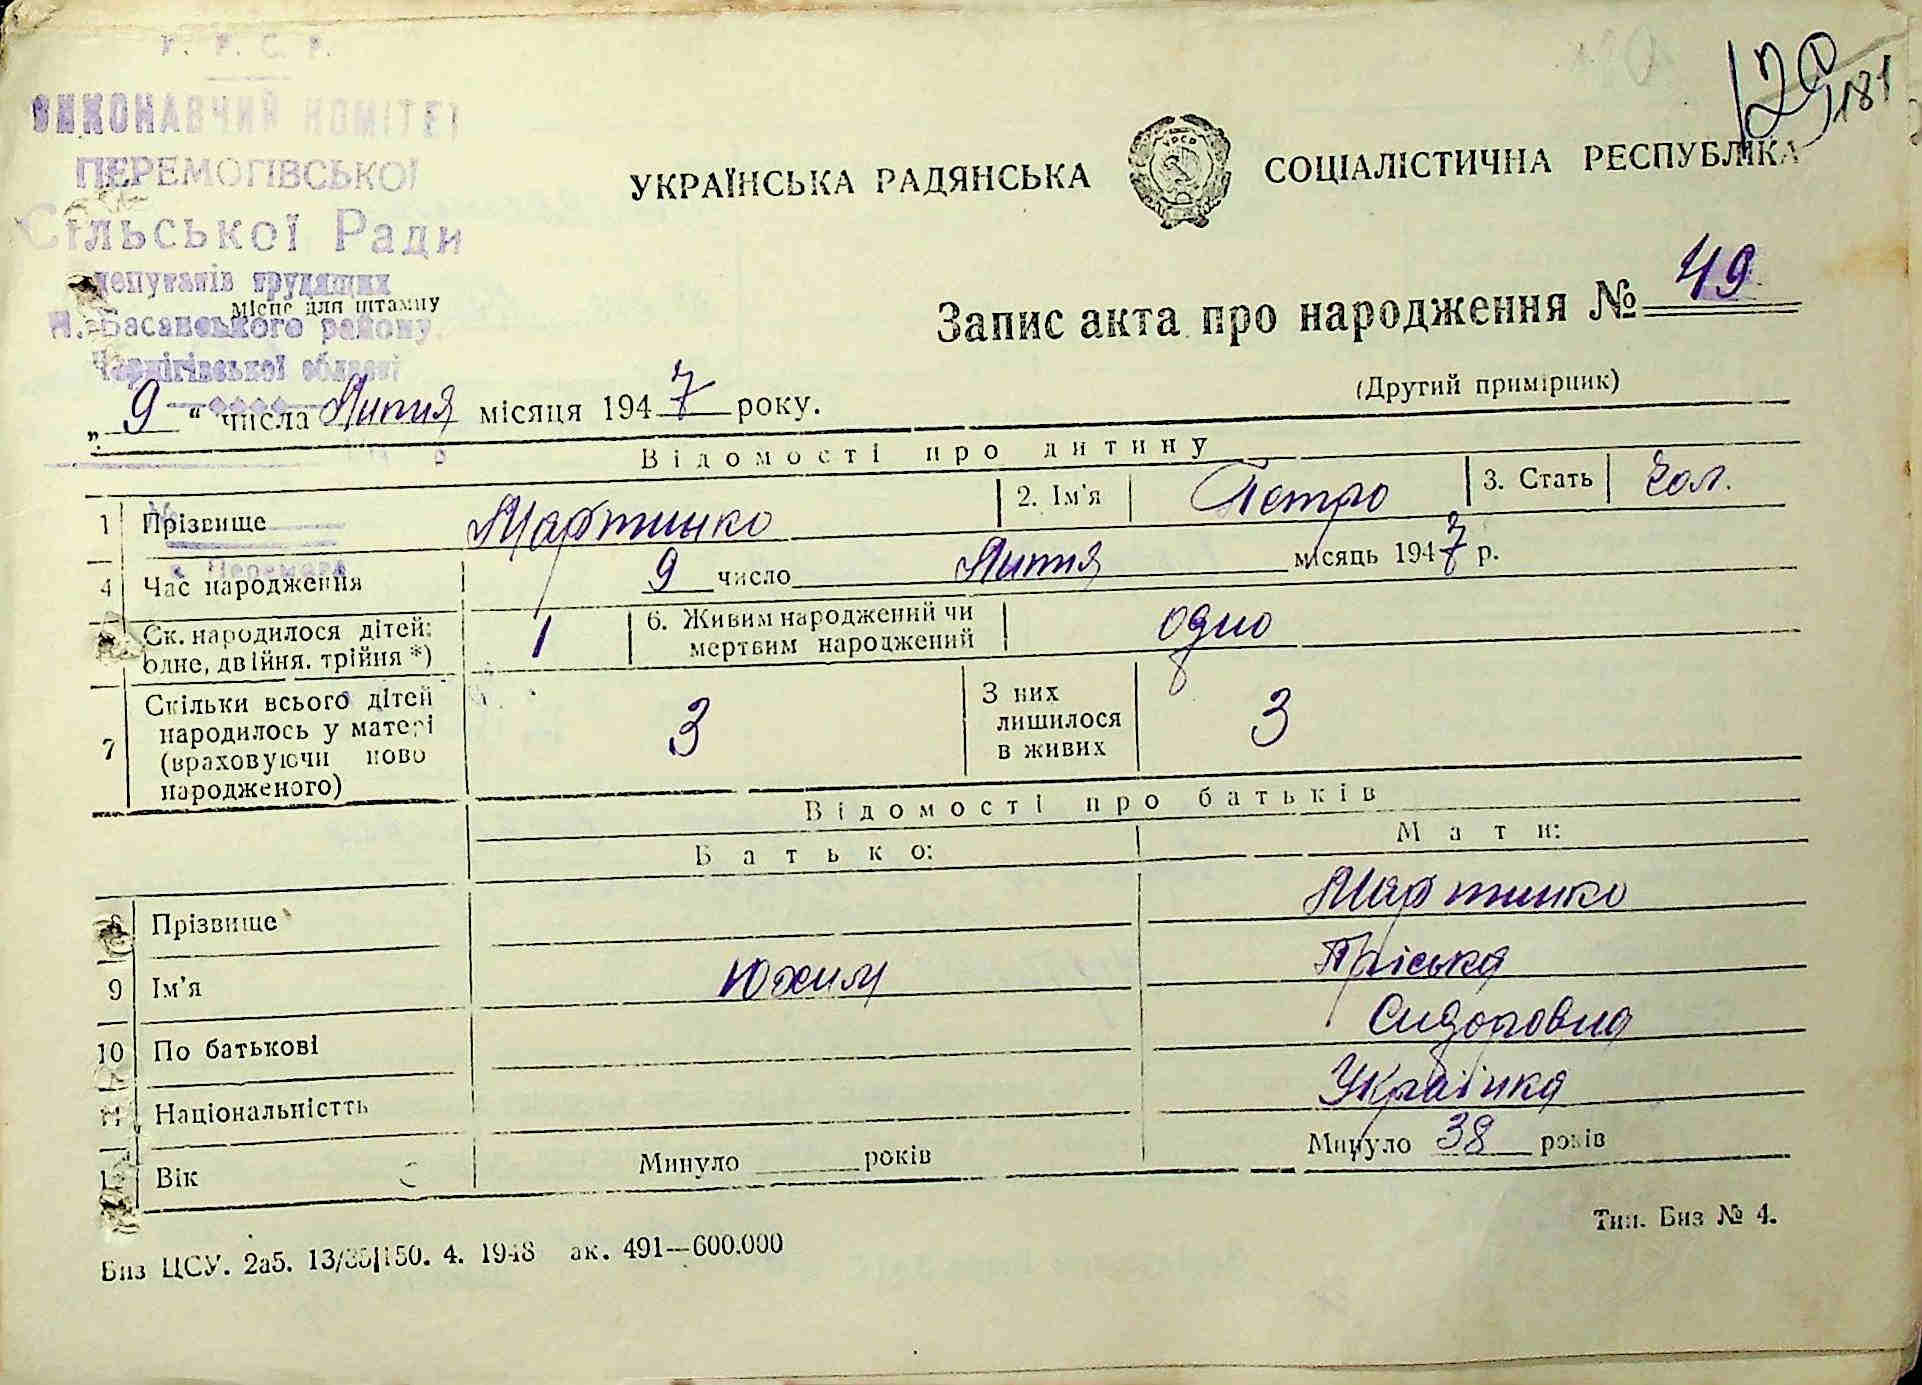 У. Р. С. Р.
ВИКОНАВЧИЙ КОМІТЕТ
ПЕРЕМОГІВСЬКОЇ
Сільської Ради
депутатів трудящих
Місце для штампу
Н.-Басанського району
Чернігівської області
129
181
УКРАЇНСЬКА РАДЯНСЬКА СОЦІАЛІСТИЧНА РЕСПУБЛІКА
Запис акта про народження № 49
(Другий примірник)
„ 9 “ числа Липня місяця 1947 року.
Відомості про дитину
1 Прізвище Мартинко 2. Ім'я Петро 3. Стать Чол.
4 Час народження 9 число Липня місяць 1947 р.
Ск. народилося дітей: 1 6. Живим народжений чи одно
одне, двійня, трійня *) мертвим народжений
7 Скільки всього дітей народилось у матері (враховуючи ново народженого) 3 З них лишилося в живих 3
Відомості про батьків
Батько: Мати:
8 Прізвище Мартинко
9 Ім'я Юхим Пріська
10 По батькові Сидоровна
11 Національністть Українка
12 Вік Минуло ____ років Минуло 38 років
Биз ЦСУ. 2а5. 13/ 150. 4. 1948 ак. 491—600.000
Тип. Биз № 4.